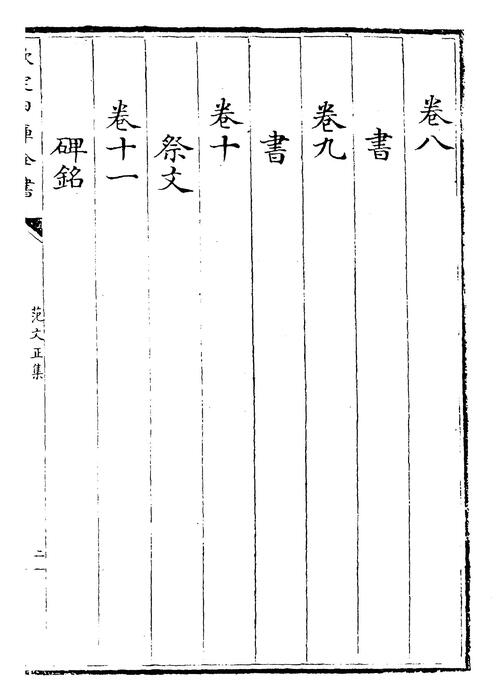 卷八
書
卷九
書
卷十
祭文
卷十一
碑銘
欽定四庫全書
范文正集
二